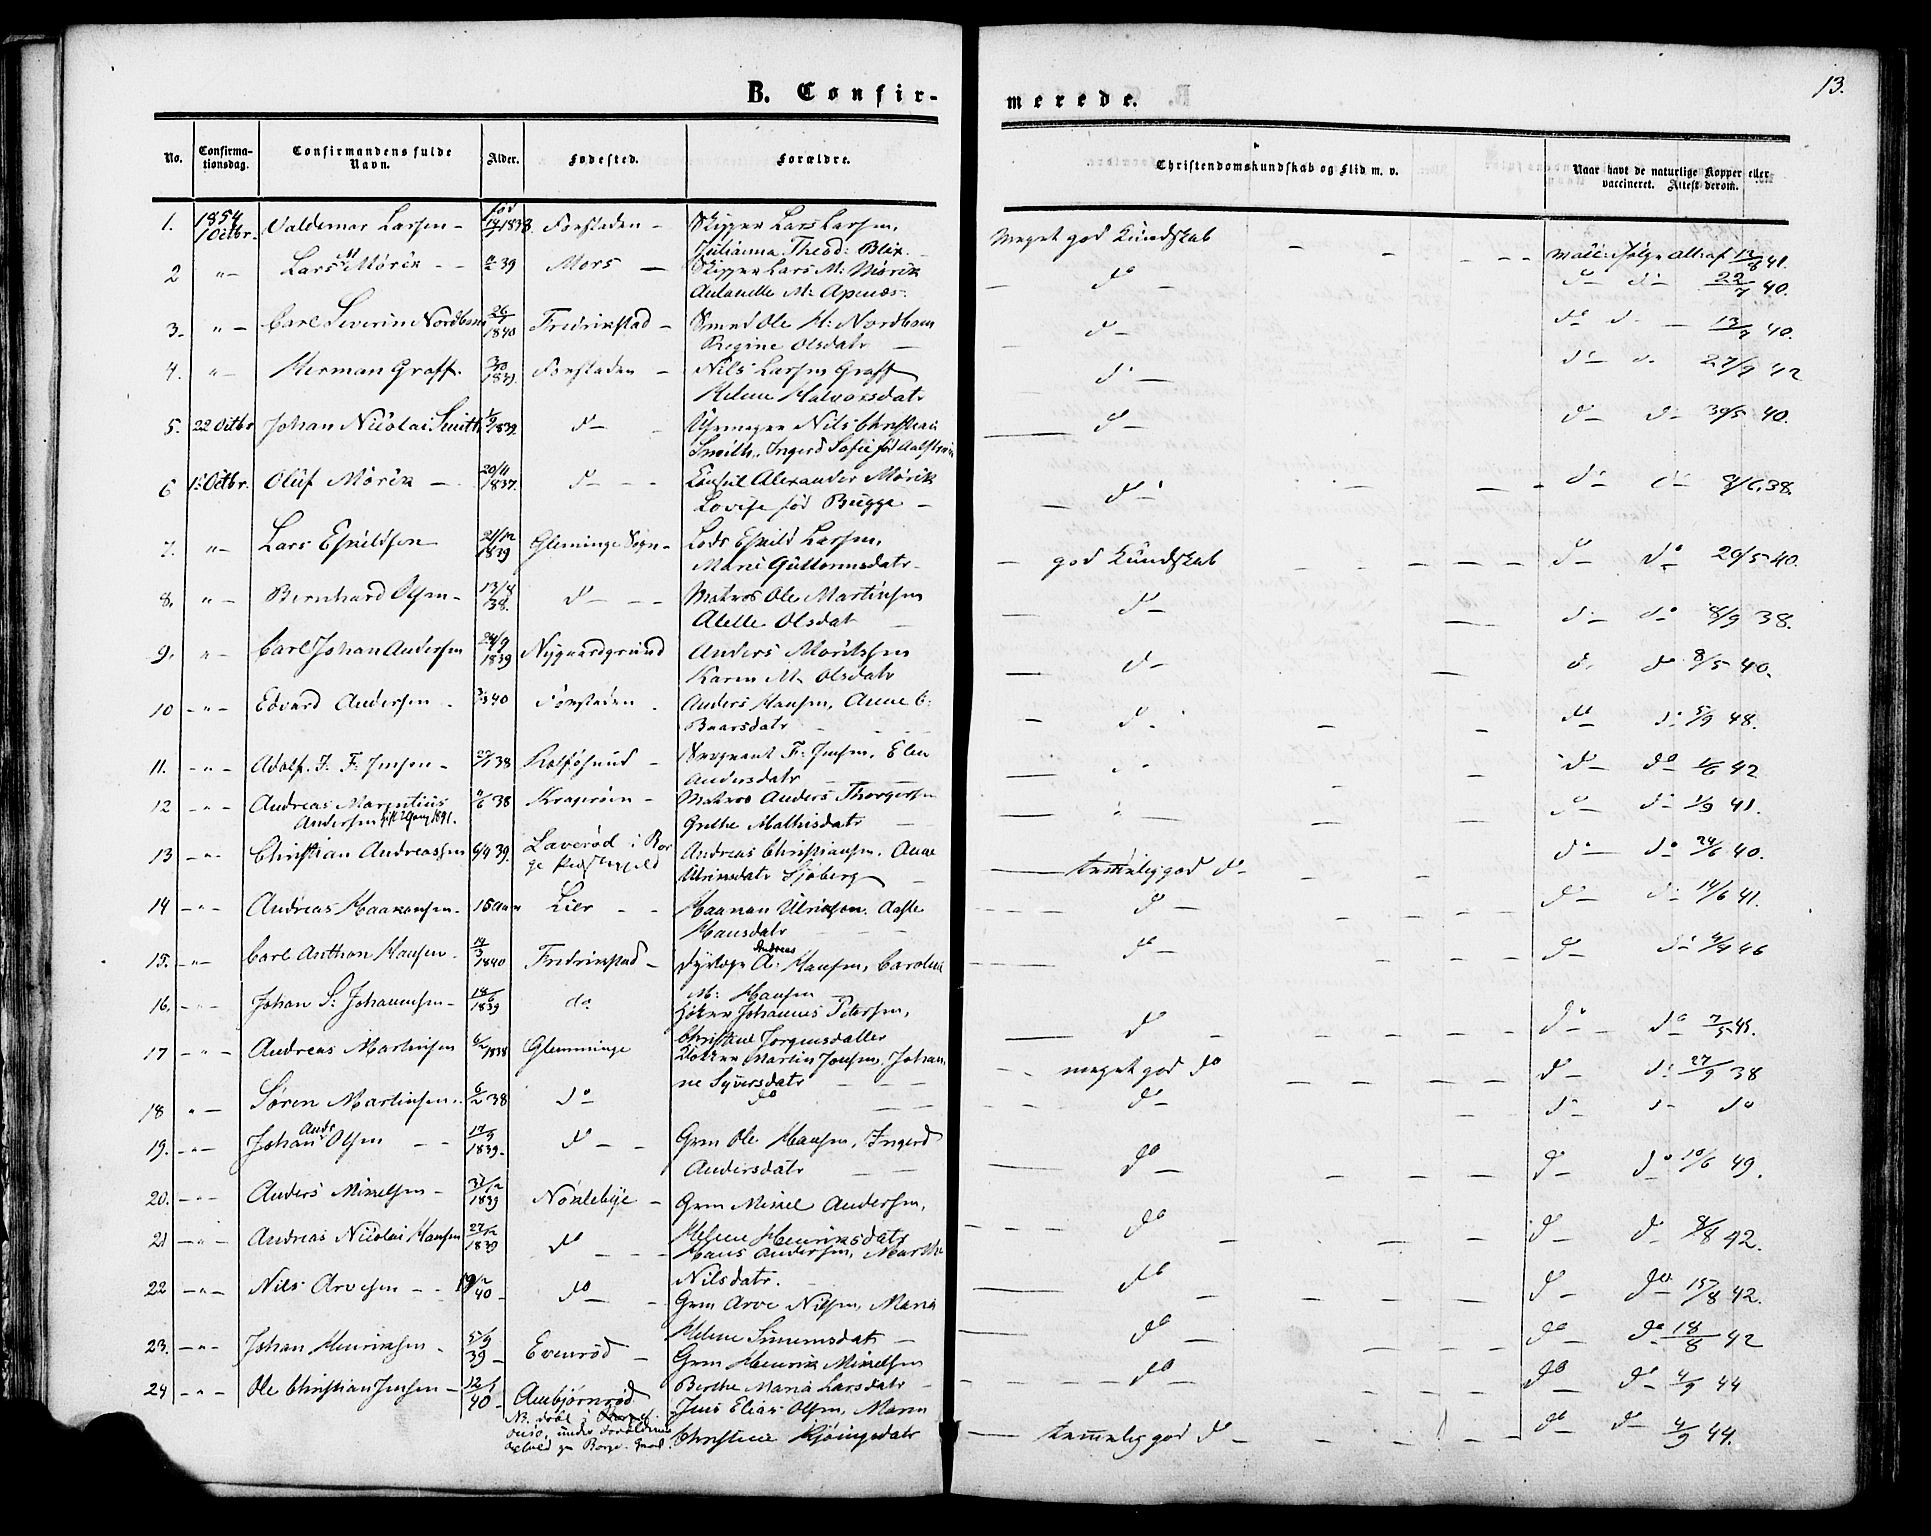 13.
B. Confir-
merede.
No.
Confirma-
tionsdag.
Confirmandens fulde
Navn.
Alder.
Fødested.
Forældre.
Christendomskundskab og Flid m. v.
Naar havt de naturlige Kopper eller
vaccineret. Attest derom.
1. 1854 1 Octbr. Valdemar Larsen - født 1838. Forstaden - Skipper Lars Larsen,
Julianna Theod: Blix. Meget god Kundskab - 41.
2 " - Lars M Mørck - - 39 Mors - Skipper Lars M: Mørck
M: Apenæs. do - 22/7 40.
3. " - Carl Severin Nordbom 26/1 1840 Fredrikstad - Smed Ole H: Nordbom
Regine Olsdatr - d - 40.
4. " - Herman Graff. 1839. Forstaden - Nils Larsen Graff
Helene Halvorsdatr d - 27/9 42
5. 22 Octbr Johan Nicolai Smith 1839. d - Nils Christian
Smith, Ingerd Sofie født d - 30/5 40.
6 1 Octbr. Oluf Mørck - 20/11 1837. d - - - Consul Alexander Mørck
Lovise født Bugge - d - 38.
7. " - Lars Eskildsen 21/12 1839 Glemminge Sogn - Lods Eskild Larsen,
Marie Guttormsdatr - god Kundskab - - - - - d - do 29/5 40.
8. " - Bernhard Olsen - 13/8 38. d - - - Matros Ole Martinsen
Olsdat d - d - do 8/9 38.
9. " - Carl Johan Andersen 24/9 1839 Nygaardsgrund Anders
Karen M. Olsdatr d - d - do 8/5 40.
10 - " - Edvard Andersen - 40 Forstaden - Anders Hansen, Anne C:
Baarsdatr d - do d 5/9 48.
11. - " - Adolf. J. F. Jensen - 38 Rolfsøsund - Sergeant F: Jensen, Elen
Andersdatr - d - do 42
12 - " - Andreas Marentius
Andersen 38 Kragerøen - Matros Anders Thorgersen
Grethe Mathisdatr d - d 1/9 41.
13 - " - Christian Andreassen 6/4 39. Laverød i Bor
ge Præstegjeld Andreas Christiansen, Anne
Sjøberg - temmelig god do - d - do 24/6 40.
14 - " - Andreas Haakensen - 15 Aar Lier - - Haaken Ulriksen. Aaste
Hansdatr do - d - d 14/6 41.
15. - " - Carl Anthon Hansen - 14/3 1840 Fredrikstad - Andreas
A: Hansen, Caroline
M: Hansen do - d - 46
16. - " - Johan S: Johannesen - 18/6 1839 do Høker Johannes Petersen,
Christine Jorgensdatter do - d - do 7/5 45.
17 - " - Andreas Martinsen 1838 Glemminge Martin Jonsen, Johan-
ne Syversdatr - meget god do d - d 27/9 38
18 " - Søren Martinsen. 6/2 38 do do do - d - d - do
19. - " - Johan Andr Olsen - - 17/9 1839 - do - - Grm Ole Hansen, Ingerd
Andersdatr do - d - do 10/6 49.
20. - " - Anders Mikkelsen - 31/12 1839 Nøklebye - Grm Mikkel Andersen,
Helene Henriksdatr do d - d - 8/8 42.
21 - " - Andreas Nicolai Hansen 27/12 1839 do - - - Hans Andersen, Marthe
Nilsdatr. - do - d - do 15/8 42.
22 - " - Nils Arvesen - - 19/2 40 do - - Grm Arve Nilsen, Maria
Helene Simensdatr - do - do - do 18/8 42
23. - " - Johan Henriksen - 5/9 39 - Evenrød - Grm Henrik Mikkelsen
Berthe Maria Larsdatr - do - do - d - 4/9 44
24 - " - Ole Christian Jensen - 12/1 40 - Ambjørnrød
Jens Elias Olsen, Maren
Christine - temmelig god d - do - d - 4/9 44.